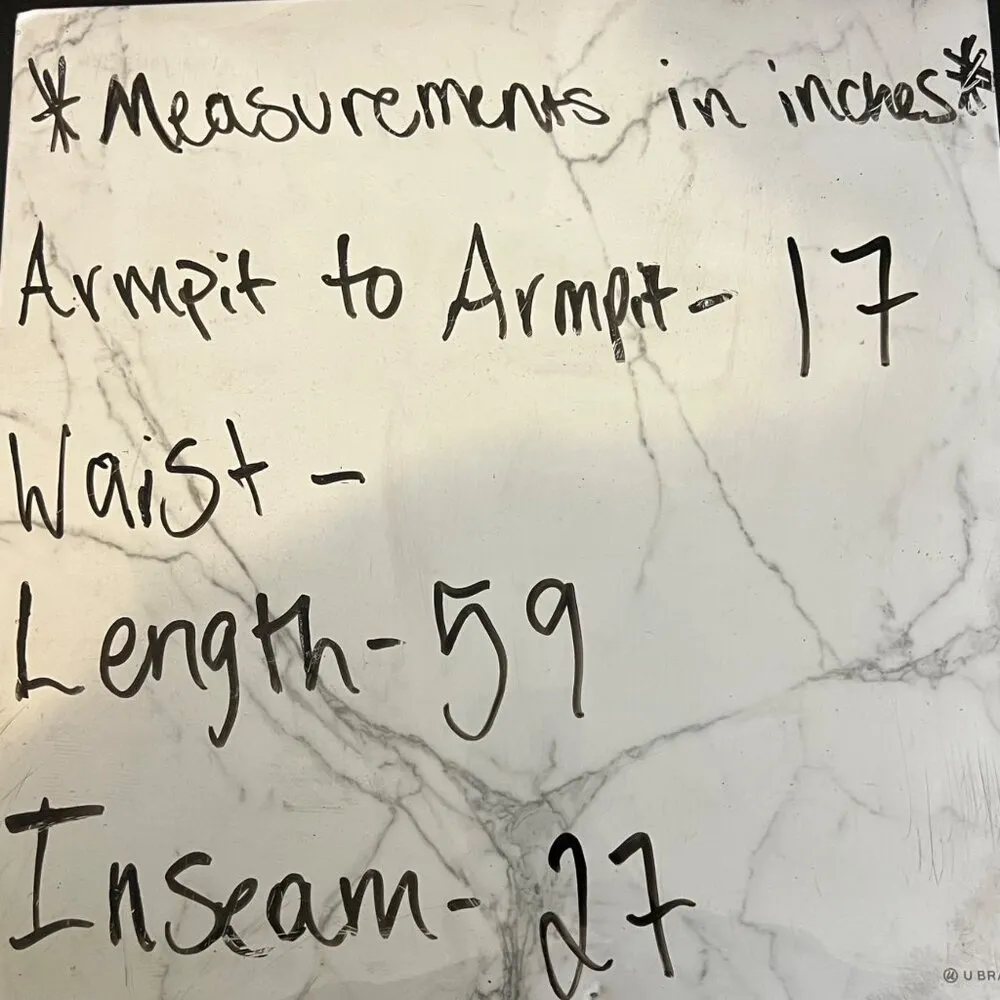 *Measurements in inches*
Armpit to Armpit- 17
Waist -
Length- 59
Inseam- 27
U BRA